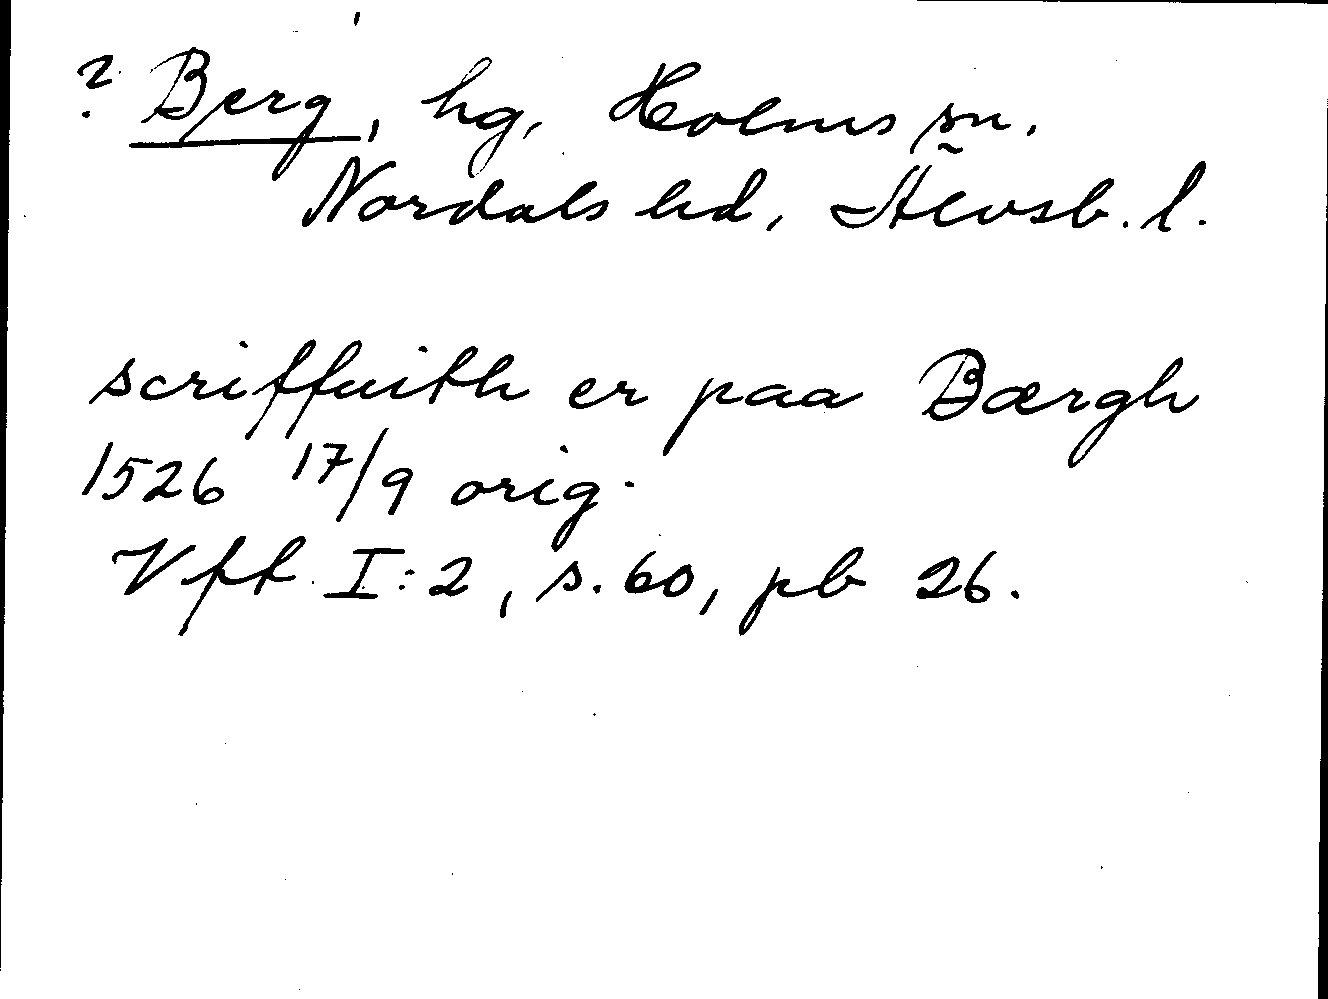 ? Berg, hg, Holms sn.
Nordals hd, Älvsb. l.
scriffuith er paa Bærgh
1526 17/9 orig.
Vff I:2, s. 60, pb 26.